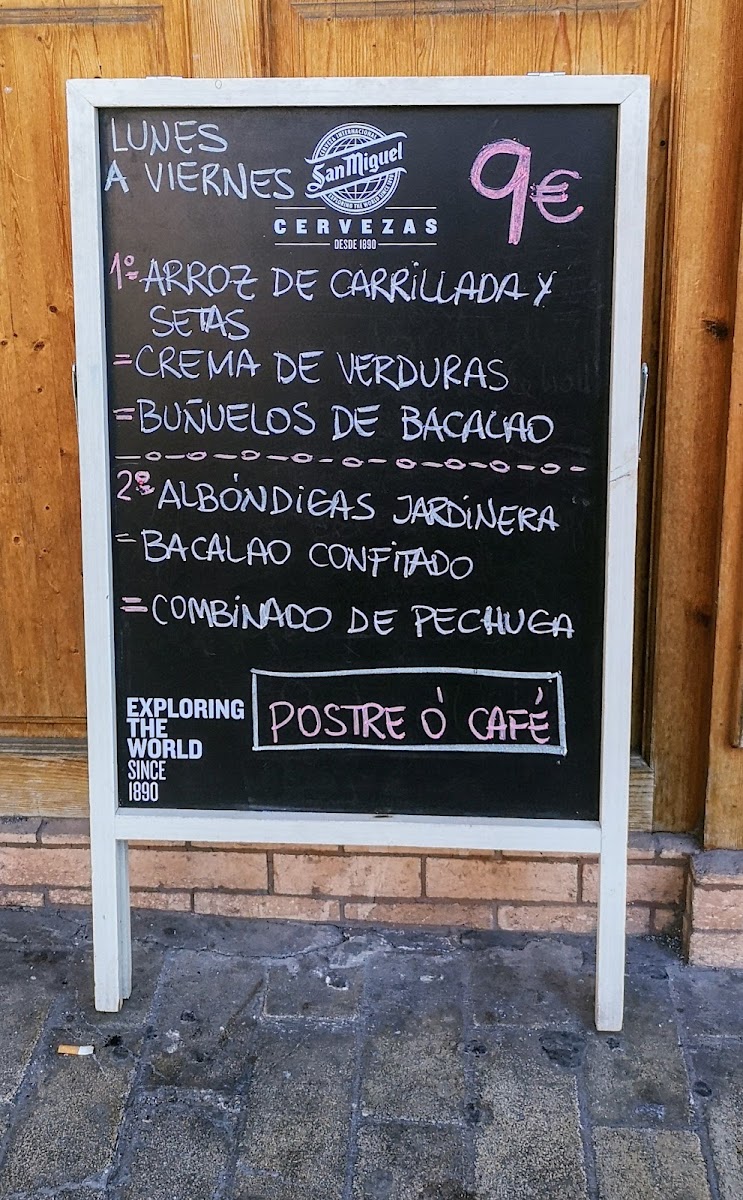 LUNES
A VIERNES
CERVEZA INTERNACIONAL
San Miguel
EXPLORING THE WORLD SINCE 1890
CERVEZAS
DESDE 1890
9€
1º=ARROZ DE CARRILLADA Y
SETAS
=CREMA DE VERDURAS
=BUÑUELOS DE BACALAO
2º ALBÓNDIGAS JARDINERA
=BACALAO CONFITADO
=COMBINADO DE PECHUGA
POSTRE Ó CAFÉ
EXPLORING
THE
WORLD
SINCE
1890